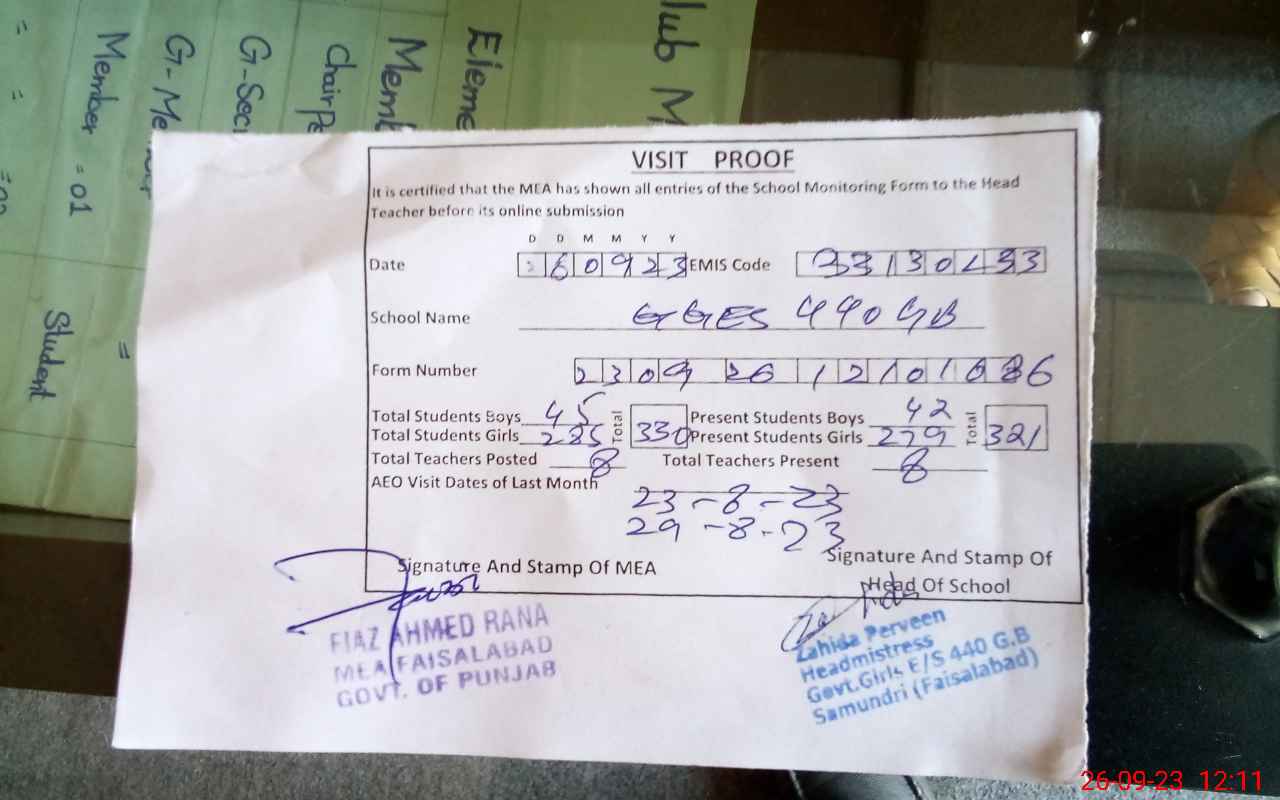 lub M
Eleme
Memb
Chair Pe
G-Secr
G-Me
Member = 01
Student
VISIT PROOF
It is certified that the MEA has shown all entries of the School Monitoring Form to the Head
Teacher before its online submission
D D M M Y Y
Date 260923 EMIS Code
School Name GGES 440 GB
Form Number
Total Students Boys 45 Total 330 Present Students Boys 42 Total 321
Total Students Girls 285 Present Students Girls 279
Total Teachers Posted 8 Total Teachers Present 8
AEO Visit Dates of Last Month
23-8-23
29-8-23
Signature And Stamp Of MEA
Signature And Stamp Of
Head Of School
FIAZ AHMED RANA
MEA FAISALABAD
GOVT. OF PUNJAB
Zahida Perveen
Headmistress
Govt.Girls E/S 440 G.B
Samundri (Faisalabad)
26-09-23 12:11